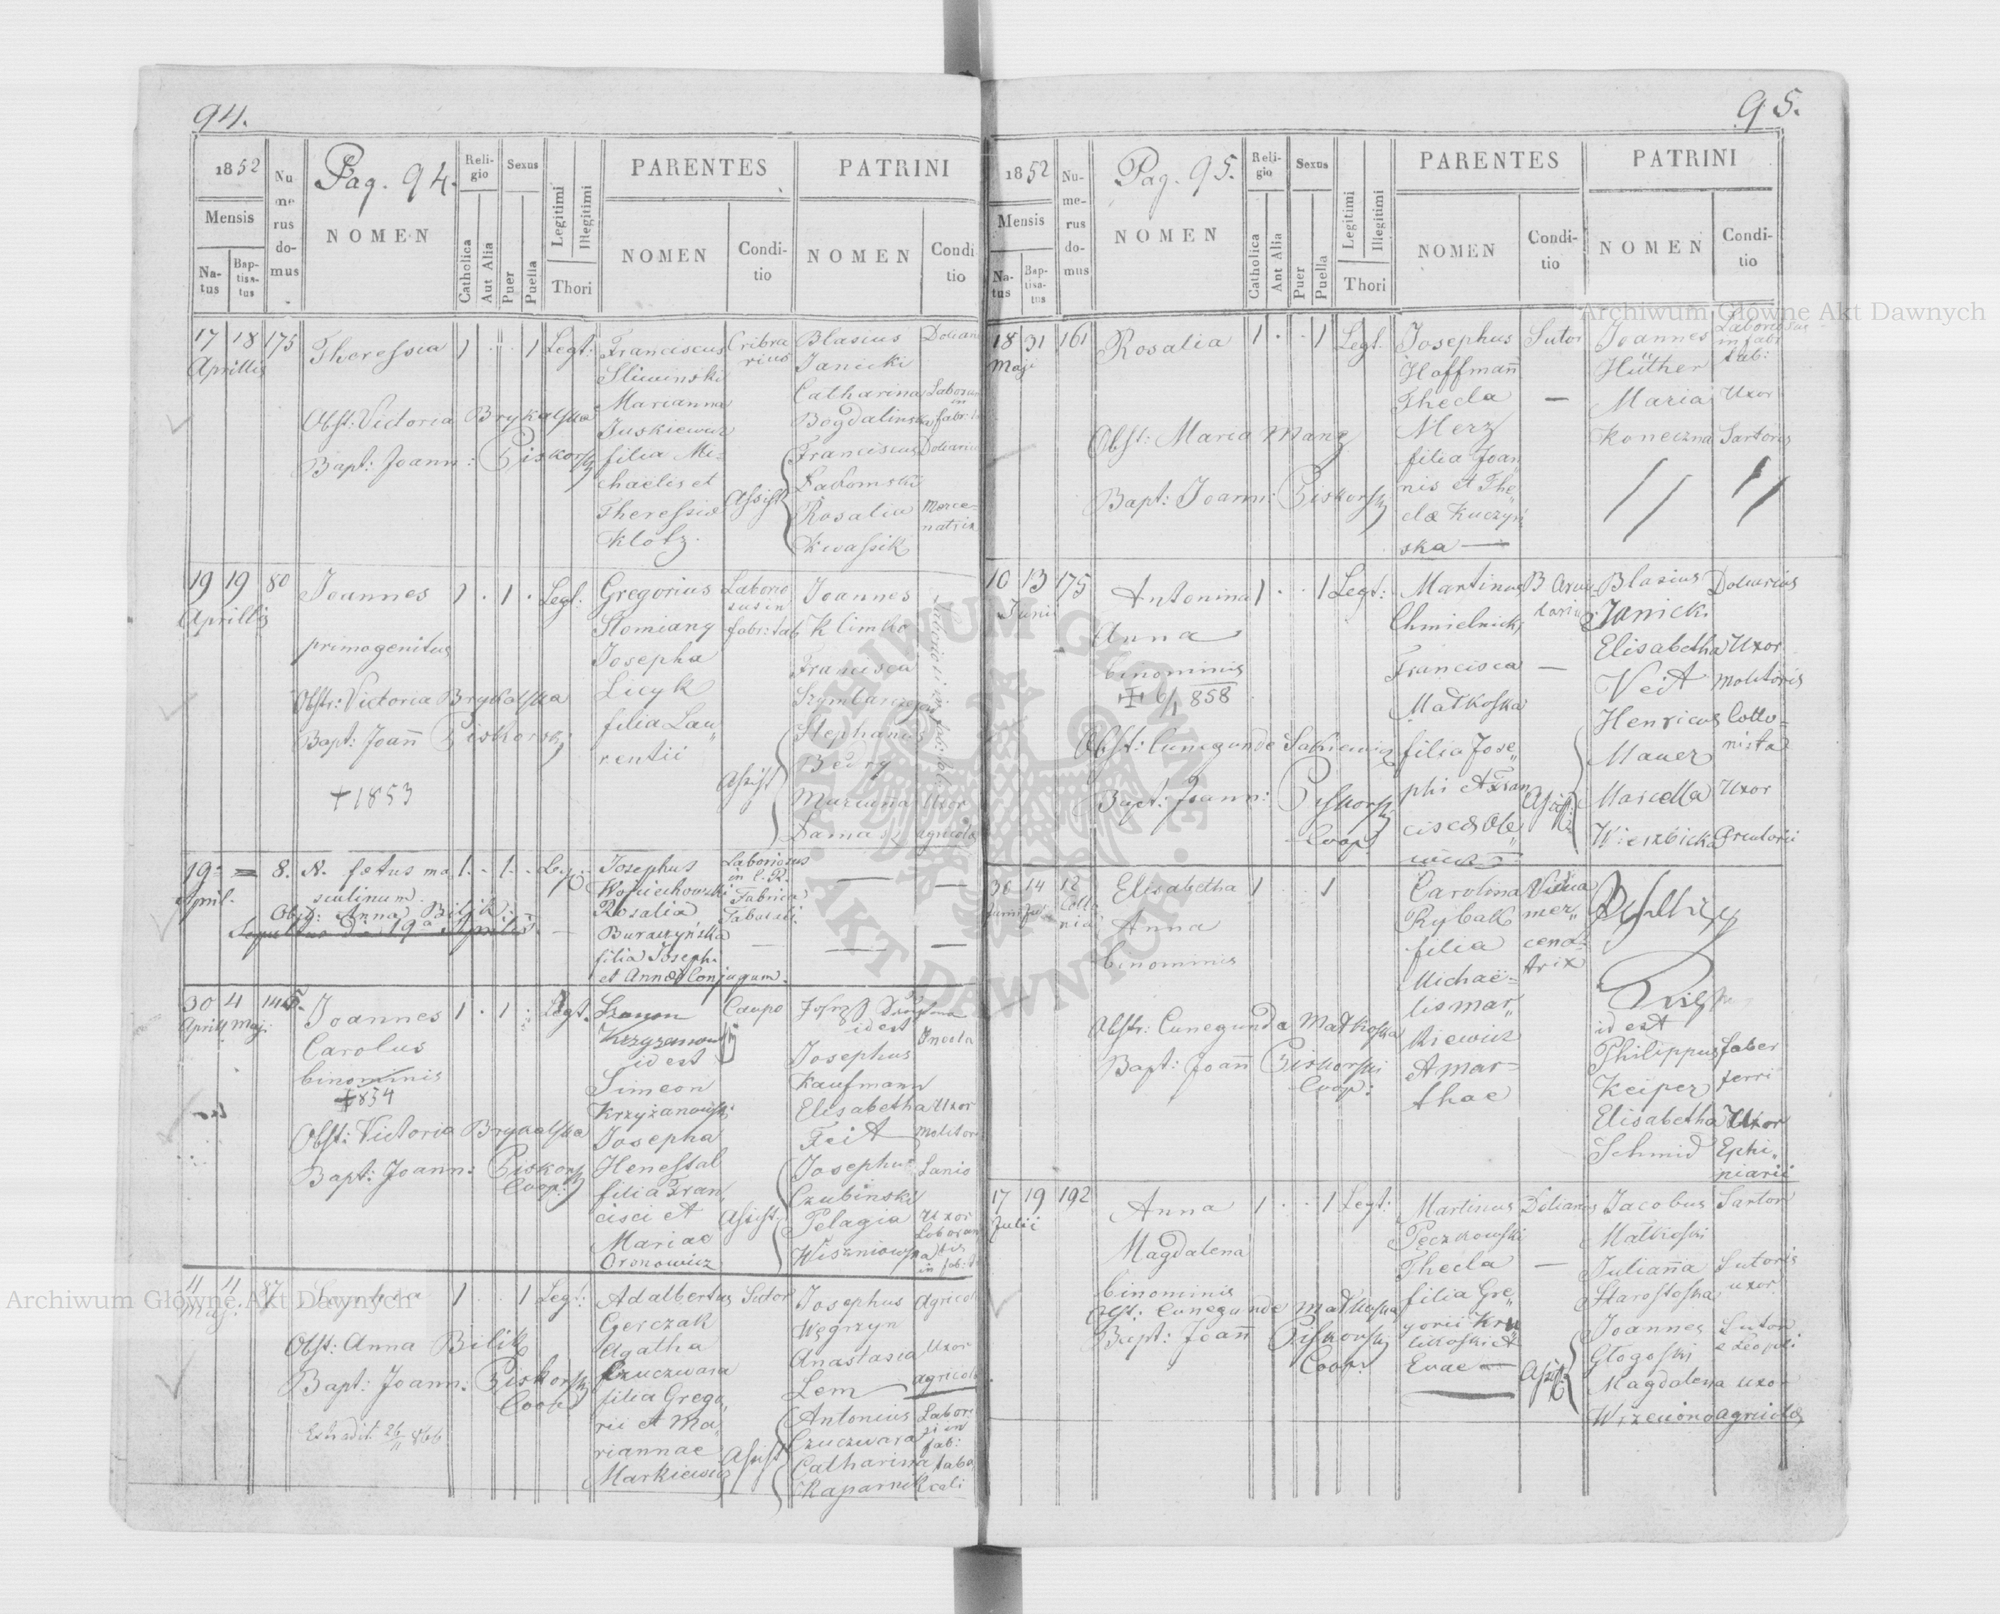 94.
1852
Mensis
Natus
Baptisatus
Numerus domus
Pag. 94.
NOMEN
Religio
Catholica
Aut Alia
Sexus
Puer
Puella
Legitimi
Illegitimi
Thori
PARENTES
NOMEN
Conditio
PATRINI
NOMEN
Conditio
17 18 175 Theressia 1 . . 1 Legt:
Aprillis
Obst: Victoria Brykalska
Bapt: Joann: Piskorski
Franciscus
Sliwinski
Marianna
Juskiewicz
filia Mi-
chaelis et
Theressiæ
Klotz.
Cribra
rius
Assist
Blasius
Janicki
Catharina
Bogdalinska
Franciscus
Radomski
Rosalia
Kwassik
Merce-
natrix
19 19 80 Joannes 1 . 1 . Legt:
Aprillis
primogenitus
Obst: Victoria Brykalska
Bapt: Joan̄ Piskorski
+ 1853
Gregorius
Slomiany
Josepha
Licyk
filia Lau,,
rentii
Laborio
sus in
fabr: tab
Assist
Joannes
Klimko
Francisca
Stephanus
Bedry
Marianna
Damas
Uxor
agricolæ
19 8. N. fœtus ma 1 . 1 . Leg:
April.
sculinum.
Obst: Anna Bilik
Sepultus d 19a Aprilis.
Josephus
Woyciechowski
Rosalia
Buraczyńska
filia Joseph:
et Annæ Conjugum.
Laboriosus
in C. R.
Fabrica
Tabacali.
30 4 Joannes 1 . 1 . Legt.
Aprill Maj:
Carolus
binominis
+ 1854
Obst: Victoria Brykalska
Bapt: Joann: Piskorski
Coop:
id est
Simeon
Krzyżanowski
Josepha
Henessal
filia Fran
cisci et
Mariae
Oronowicz
Caupo
Assist:
id est
Josephus
Kaufmann
Elisabetha
Feit
Josephus
Czubinski
Pelagia
Wiszniowska
Uxor
Molitor
Lanio
Uxor
4 4 87 Sophia 1 . . 1 Legt:
Maj:
Obst: Anna Bilik
Bapt: Joann: Piskorski
Coop:
Adalbertus
Gerczak
Agatha
Czuczwara
filia Grego,,
rii et Ma,,
riannae
Markiewicz
Sutor
Assist
Josephus
Węgrzyn
Anastasia
Lem
Antonius
Czuczwara
Catharina
Kaparnik
Agricola
Uxor
agricolæ
95.
1852
Mensis
Natus
Baptisatus
Numerus domus
Pag. 95.
NOMEN
Religio
Catholica
Aut Alia
Sexus
Puer
Puella
Legitimi
Illegitimi
Thori
PARENTES
NOMEN
Conditio
PATRINI
NOMEN
Conditio
18 31 161 Rosalia 1 . . 1 Legt.
Maji
Obst: Maria Manz
Bapt: Joann: Piskorski
Josephus
Hoffman̄
Thecla
Merz
filia Joan
nis et The,,
clæ Kuczyń
ska
Sutor
Joannes
Hüther
Maria
Koneczna
Laboriosus
in fabr
tab:
Uxor
Sartoris
10 13 175 Antonina 1 . . 1 Legt:
Junii
Anna
binominis
Obst: Cunegunde
Bapt: Joann: Piskorski
Coop:
Martinus
Chmielnicki
Francisca
Matkoska
filia Jose,,
phi et Fran
Assist:
Blasius
Janicki
Elisabetha
Veit
Henricus
Mauer
Marcella
Wierzbicka
Doliarius
Uxor
Molitoris
Collo-
nista
Uxor
30 14 12 Elisabetha 1 . 1
Anna
binominis
Obst: Cunegunda Matkoska
Bapt: Joan̄ Piskorski
Coop:
Carolina
Ryball
filia
Michaë-
lis Mar,,
kiewicz
et Mar-
thae
mer,,
cena-
trix
id est
Philippus
Keiper
Elisabetha
Schmid
faber
ferri
Uxor
Ephi,,
piarii
17 19 192 Anna 1 . . 1 Legt:
Julii
Magdalena
binominis
Obst: Cunegunde Matkoska
Bapt: Joan̄ Piskorski
Coop:
Martinus
Pęczkowski
Thecla
filia Gre,,
gorii Kru
likoski et
Evae
Doliarius
Assist:
Jacobus
Matkoski
Julian̄a
Starostoska
Joannes
Głogoski
Magdalena
Sartor
Sutoris
uxor
Sutor
e Leopoli
uxor
agricolæ
Archiwum Główne Akt Dawnych
Archiwum Główne Akt Dawnych
ARCHIWUM GŁÓWNE · AKT DAWNYCH ·